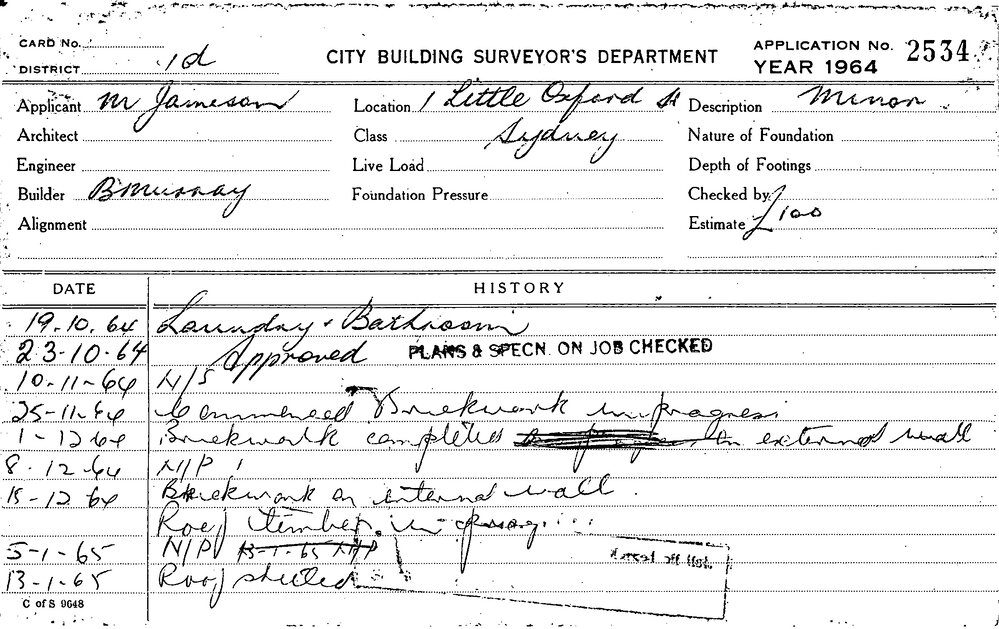 CARD No.
DISTRICT 1d
CITY BUILDING SURVEYOR'S DEPARTMENT
APPLICATION No. 2534
YEAR 1964
Applicant M Jameson
Location 1 Little Oxford St
Description Minor
Architect
Class Sydney
Nature of Foundation
Engineer
Live Load
Depth of Footings
Builder B Murray
Foundation Pressure
Checked by
Alignment
Estimate £100
DATE HISTORY
19.10.64 Laundry & Bathroom
23-10-64 Approved PLANS & SPECN. ON JOB CHECKED
10-11-64 N/S
25-11-64 Commenced Brickwork in progress
1-12 64 Brickwork completed on external wall
8.12.64 N/P
15-12 64 Brickwork on internal wall.
Roof timber in prog...
5-1-65 N/P 13-1-65 N/P
13-1-65 Roof sheeted
off list.
C of S 9648